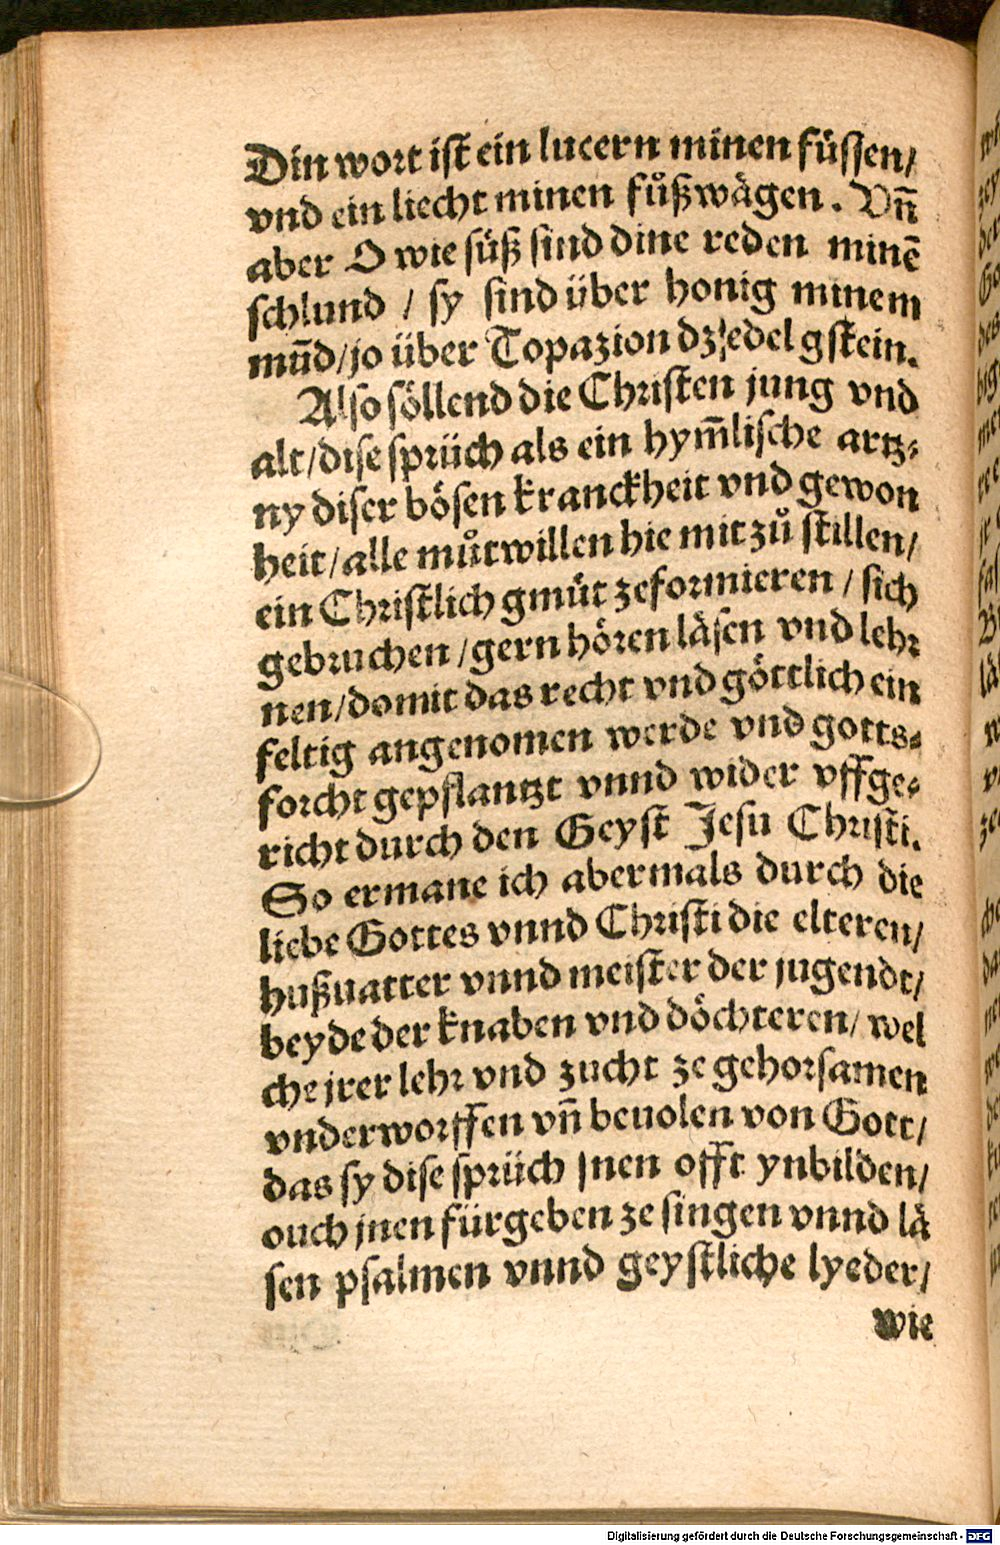 Din wort ist ein lucern minen füssen/
vnd ein liecht minen fůßwägen. Vñ
aber O wie süß sind dine reden minē
schlund / sy sind über honig minem
mūd/jo über Topazion dz edel gstein.
Also söllend die Christen jung vnd
alt/dise sprüch als ein hym̄lische artz⸗
ny diser bösen kranckheit vnd gewon
heit/alle můtwillen hie mit zů stillen/
ein Christlich gmüt zeformieren / sich
gebruchen /gern hören läsen vnd lehr
nen/domit das recht vnd göttlich ein
feltig angenomen werde vnd gotts⸗
forcht gepflantzt vnnd wider vffge⸗
richt durch den Geyst Jesu Christi.
So ermane ich abermals durch die
liebe Gottes vnnd Christi die elteren/
hußuatter vnnd meister der jugendt/
beyde der knaben vnd döchteren/ wel
che jrer lehr vnd zucht ze gehorsamen
vnderworffen vñ beuolen von Gott/
das sy dise sprüch jnen offt ynbilden/
ouch jnen fürgeben ze singen vnnd lä
sen psalmen vnnd geystliche lyeder/
wie
Digitalisierung gefördert durch die Deutsche Forschungsgemeinschaft - DFG